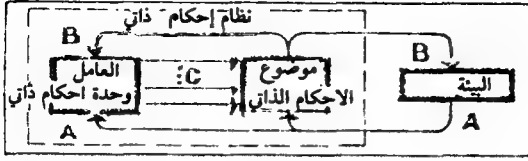 نظام إحكام ذاتي
B
B
C:
العامل
وحدة احكام ذاتي
موضوع
الاحكام الذاتي
البيئة
A
A